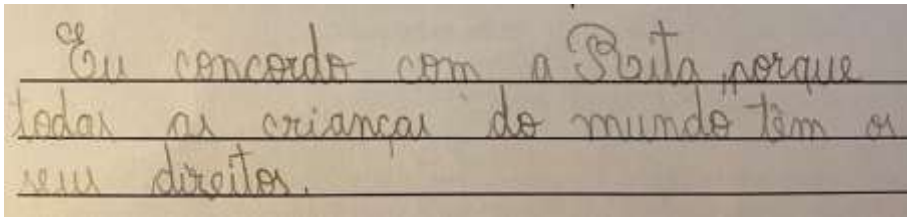 Eu concordo com a Rita, porque
todas as crianças do mundo têm os
seus direitos.